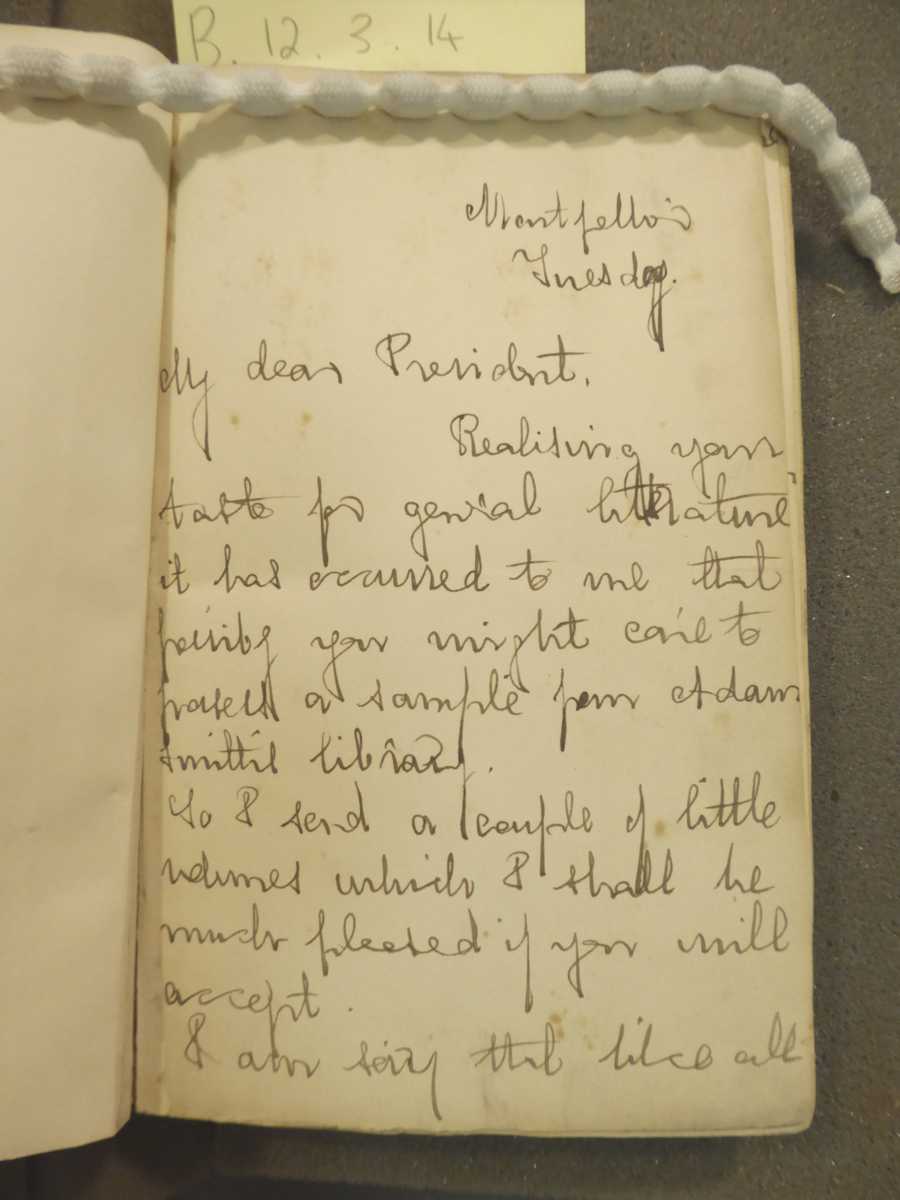 B. 12. 3. 14
Montpellier
Tuesday.
My dear President,
Realising your
taste for genial literature
it has occurred to me that
possibly you might care to
possess a sample from Adam
Smith's library.
So I send a couple of little
volumes which I shall be
much pleased if you will
accept.
I am sorry that like all